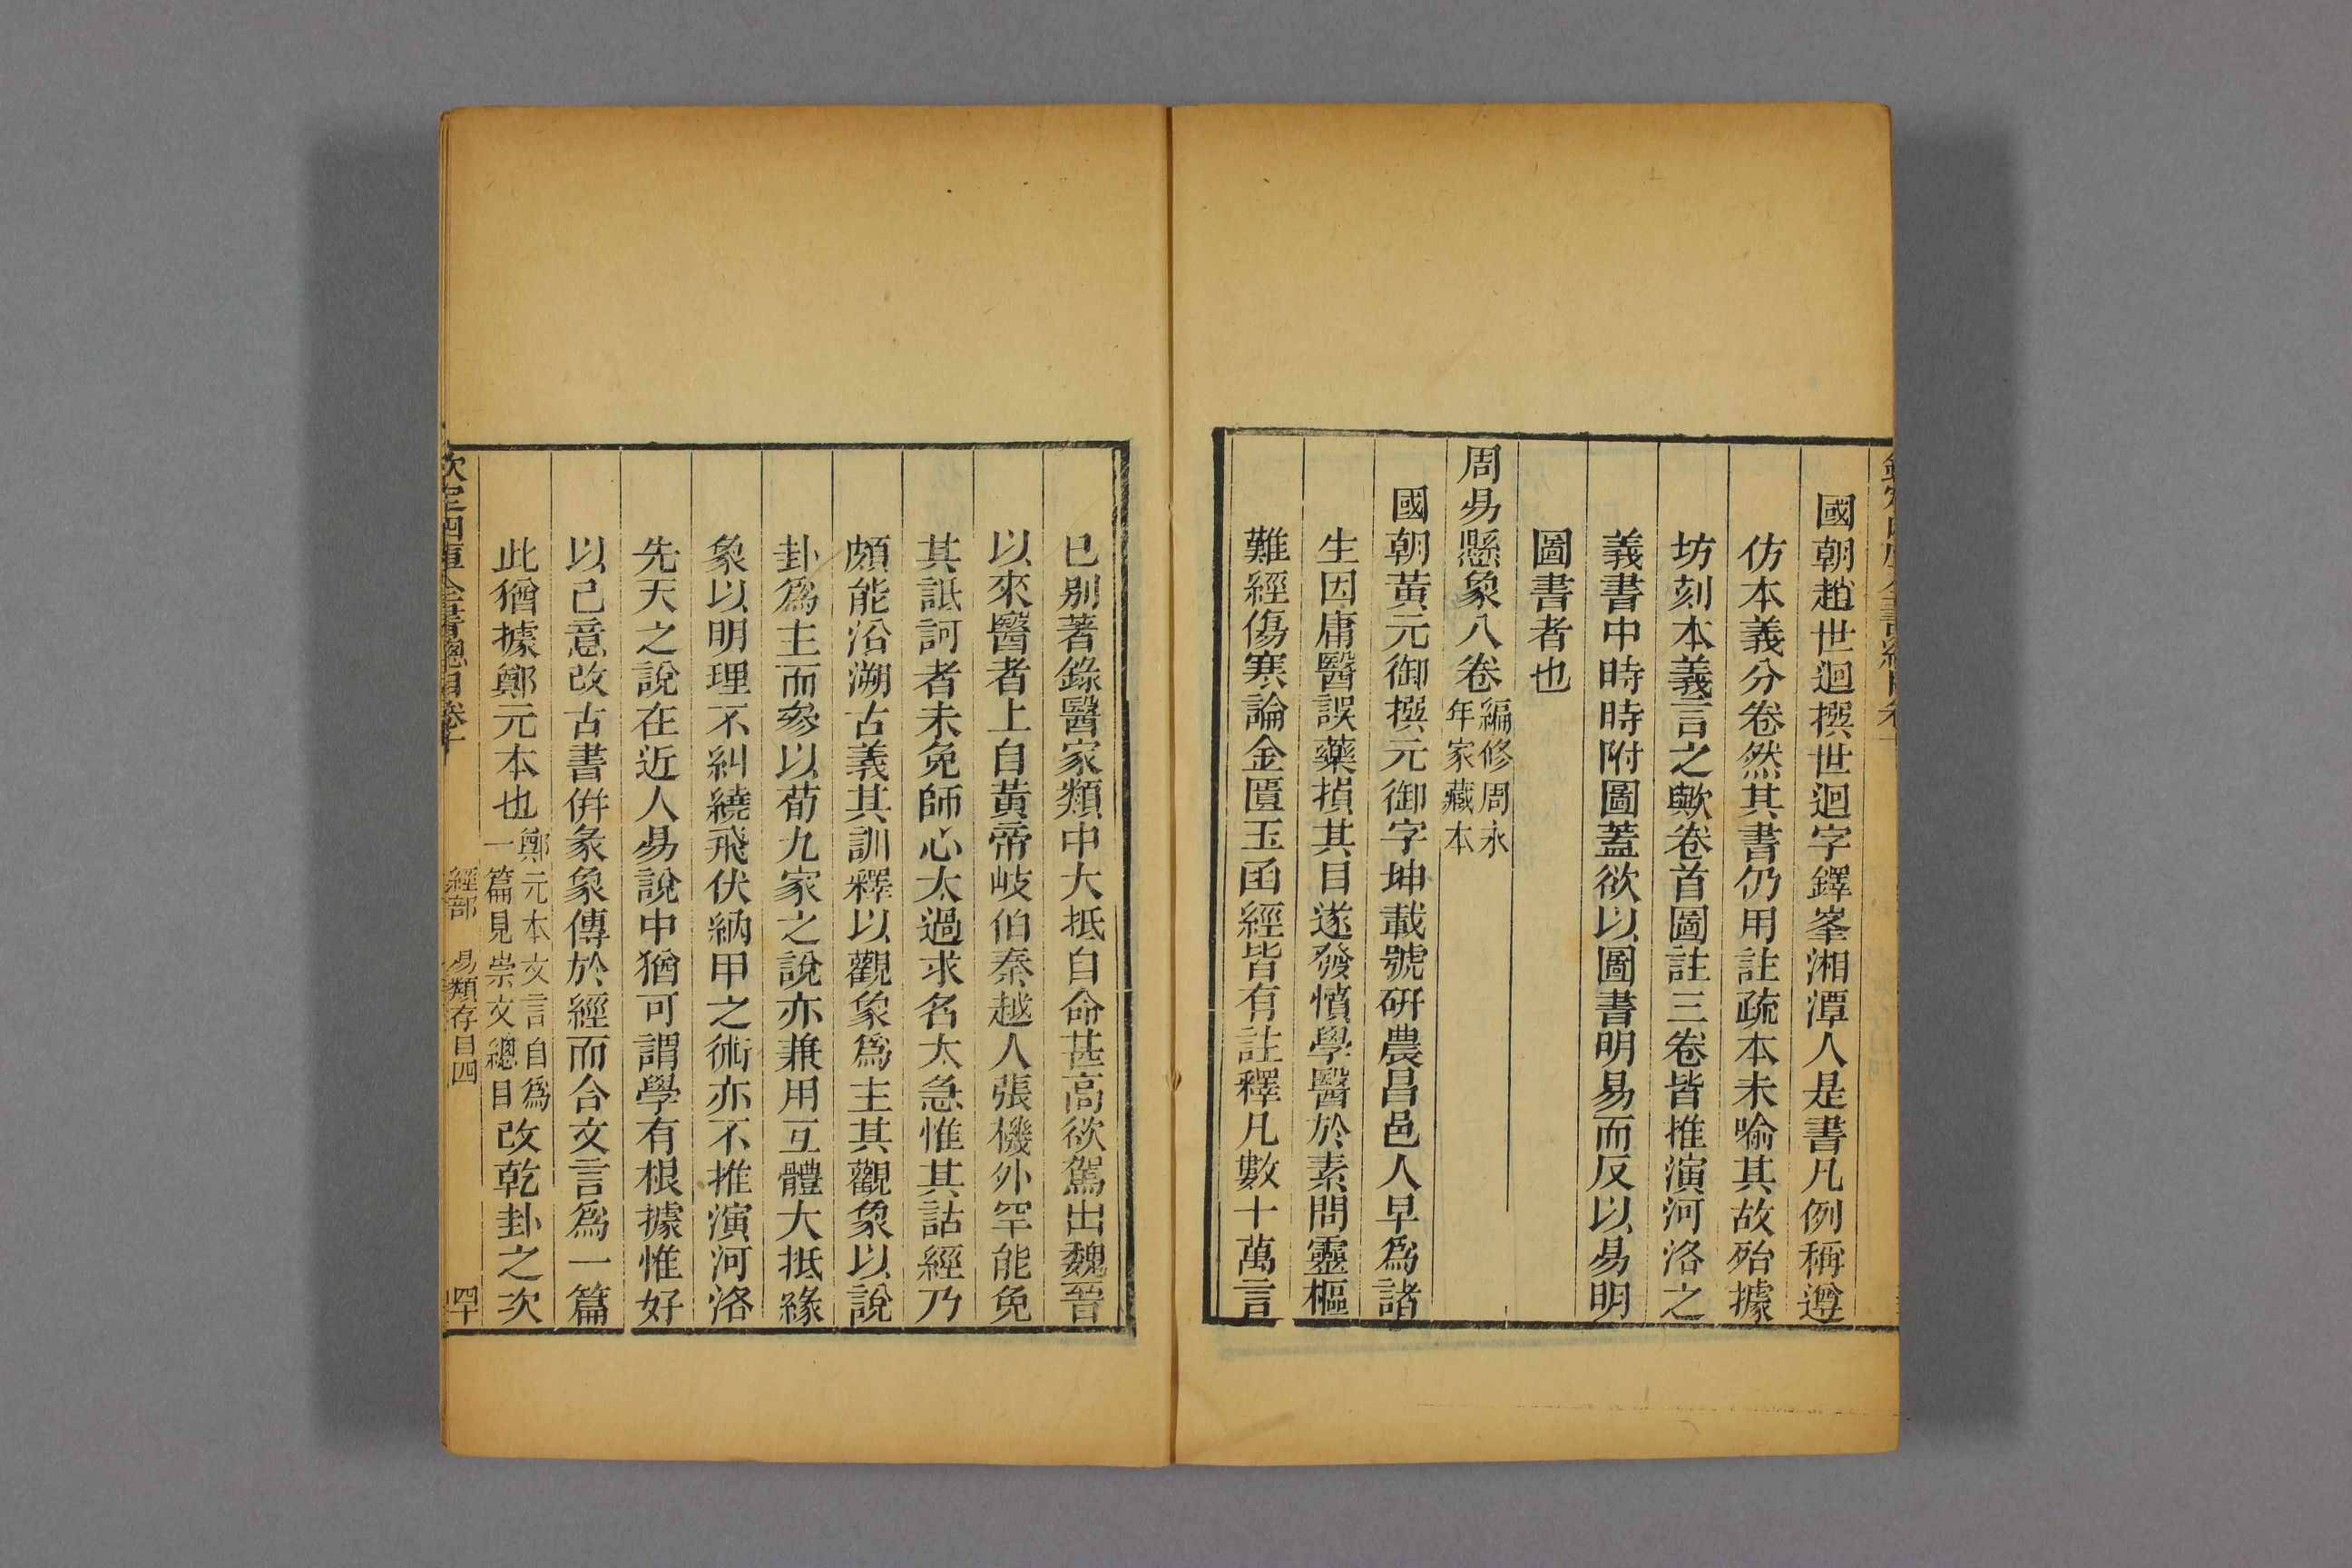 國朝趙世迴撰世迴字鐸峯湘潭人是書凡例稱遵
仿本義分卷然其書仍用註疏本未喻其故殆據
坊刻本義言之歟卷首圖註三卷皆推演河洛之
義書中時時附圖蓋欲以圖書明易而反以易明
圖書者也
周易懸象八卷編修周永年家藏本
國朝黃元御撰元御字坤載號研農昌邑人早爲諸
生因庸醫誤藥損其目遂發憤學醫於素問靈樞
難經傷寒論金匱玉函經皆有註釋凡數十萬言
已別著錄醫家類中大抵自命甚高欲駕出魏晉
以來醫者上自黃帝岐伯秦越人張機外罕能免
其詆訶者未免師心太過求名太急惟其詁經乃
頗能沿溯古義其訓釋以觀象爲主其觀象以說
卦爲主而參以荀九家之說亦兼用互體大抵緣
象以明理不糾繞飛伏納甲之術亦不推演河洛
先天之說在近人易說中猶可謂學有根據惟好
以己意改古書併彖象傳於經而合文言爲一篇
此猶據鄭元本也鄭元本文言自爲一篇見崇文總目改乾卦之次
欽定四庫全書總目卷十 經部 易類存目四 四十